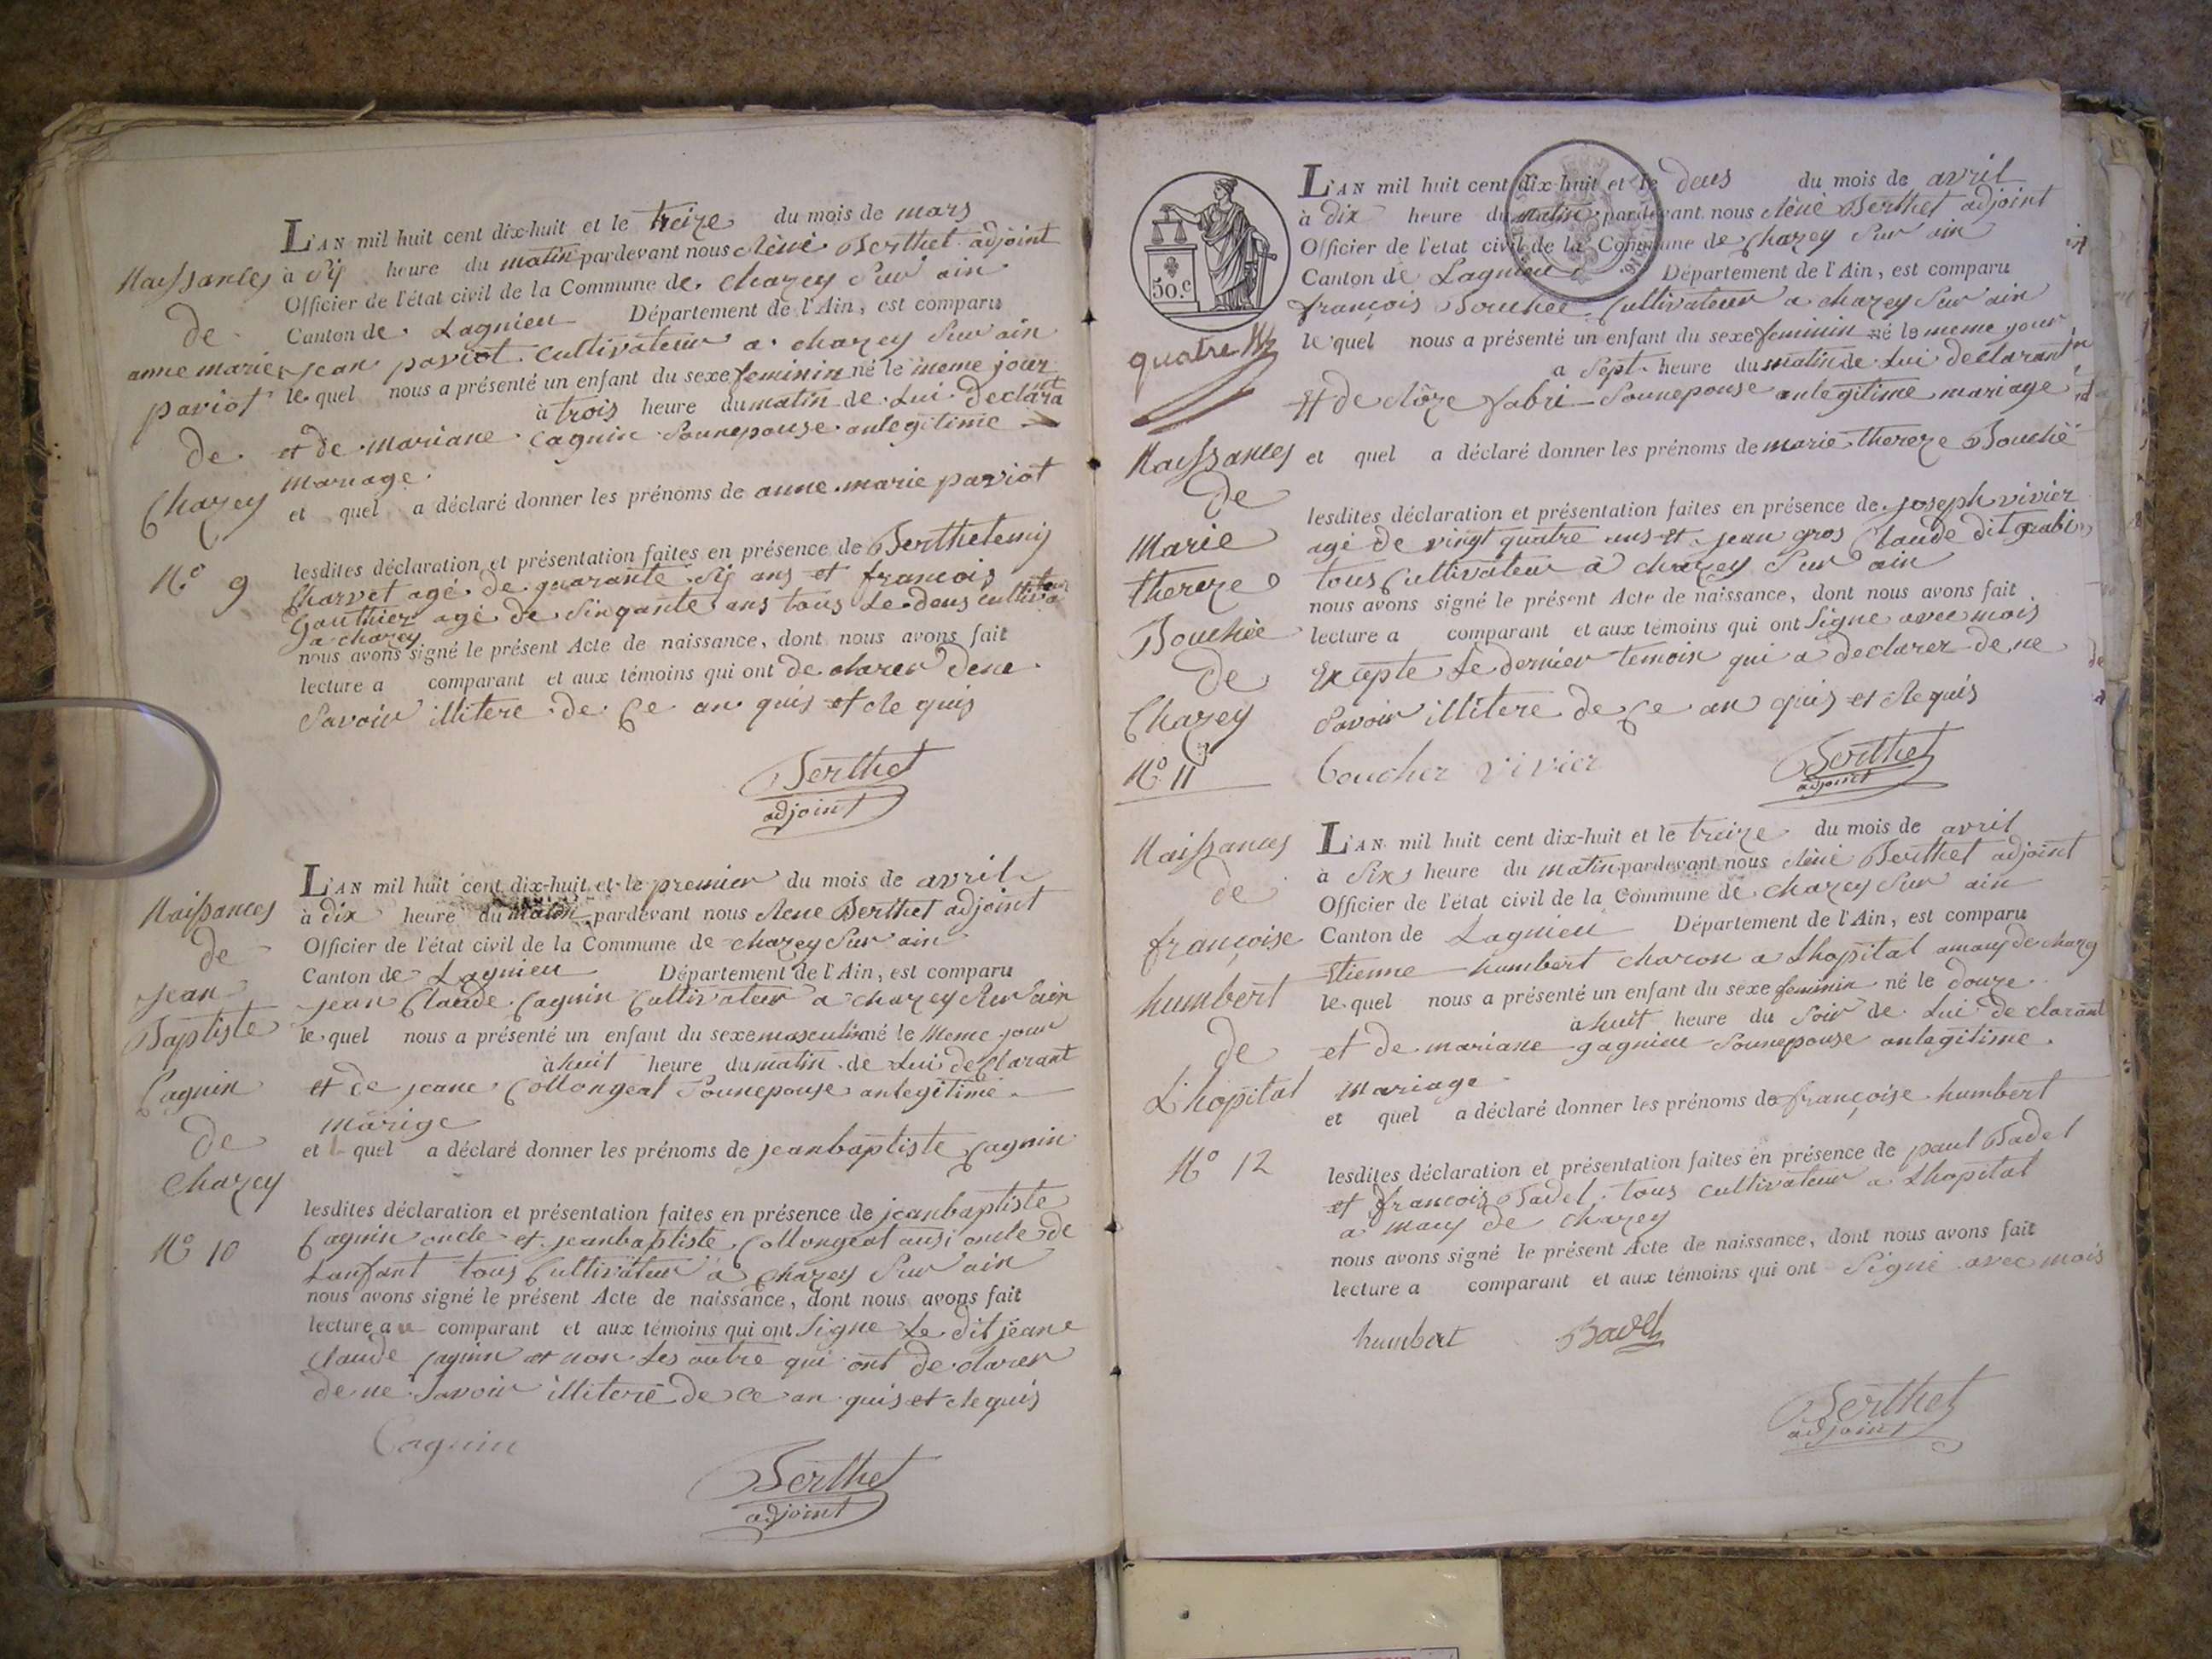 Naissances
de
anne marie
paviot
de
Chazey
N.° 9
L'AN mil huit cent dix-huit et le treize du mois de mars
à Sij heure du matin pardevant nous Réné Berthet adjoint
Officier de l'état civil de la Commune de Chazey Sur ain
Canton de Lagnieu Département de l'Ain, est comparu
jean paviot cultivateur a chazey Sur ain
le quel nous a présenté un enfant du sexe feminin né le meme jour
à trois heure du matin de Lui declarant
et de mariane Cagnin Sounepouse anlegitime
mariage
et quel a déclaré donner les prénoms de anne marie paviot
lesdites déclaration et présentation faites en présence de Berthelemij
Charvet agé de quarante Sij ans et francois
Gauthier agé de Sinqante ans tous Le deus cultivateur
a chazey
nous avons signé le présent Acte de naissance, dont nous avons fait
lecture a comparant et aux témoins qui ont de clarer dene
Savoir illitere de Ce an quis et Re quis
Berthet
adjoint
Naissances
de
jean
Baptiste
Cagnin
de
Chazey
N.° 10
L'AN mil huit cent dix-huit et le premier du mois de avril
à dix heure du matin pardevant nous Rene Berthet adjoint
Officier de l'état civil de la Commune de chazey Sur ain
Canton de Lagnieu Département de l'Ain, est comparu
jean Claude Cagnin Cultivateur a chazey Sur ain
le quel nous a présenté un enfant du sexe masculin né le Meme jour
à huit heure du matin de Lui deClarant
et de jeane Collongeat Sounepouse anlegitime
marige
et quel a déclaré donner les prénoms de jeanbaptiste Cagnin
lesdites déclaration et présentation faites en présence de jeanbaptiste
Cagnin oncle et jeanbaptiste Collongeat ausi oncle de
Lanfant tous Cultivateur a Chazey Sur ain
nous avons signé le présent Acte de naissance, dont nous avons fait
lecture au comparant et aux témoins qui ont Signe Le dit jeane
Claude Cagnin et non Les autre qui ont de clarer
de ne Savoir illitere de Ce an quis et Re quis
Cagnin
Berthet
adjoint
50.c
quatre
Naissances
de
Marie
thereze
Bouchée
de
Chazey
N.° 11
L'AN mil huit cent dix-huit et le deus du mois de avril
à dix heure du matin pardevant nous Réné Berthet adjoint
Officier de l'etat civil de la Commune de Chazey Sur ain
Canton de Lagnieu Département de l'Ain, est comparu
françois Bouchée Cultivateur a chazey Sur ain
le quel nous a présenté un enfant du sexe feminin né le meme jour
a Sept heure du matin de Lui declarant
Et de clôze fabri Sounepouse anlegitime mariage
et quel a déclaré donner les prénoms de marie thereze Bouchié
lesdites déclaration et présentation faites en présence de joseph vivier
agé de vingt quatre ans et jean gros Claude dit
tous Cultivateur a chazey Sur ain
nous avons signé le présent Acte de naissance, dont nous avons fait
lecture a comparant et aux témoins qui ont Signe avec mois
Excepte Le dernier temoin qui a declarer de ne
Savoir illitere de Ce an quis et Requis
boucher vivier
Berthet
adjoint
Naissances
de
françoise
humbert
de
L'hopital
N° 12
L'AN mil huit cent dix-huit et le treize du mois de avril
à Six heure du matin pardevant nous Réné Berthet adjoint
Officier de l'état civil de la Commune de Chazey Sur ain
Canton de Lagnieu Département de l'Ain, est comparu
Etienne humbert charon a Lhopital amauj de chazey
le quel nous a présenté un enfant du sexe feminin né le douze
à huit heure du Soir de Lui de clarant
et de mariane gagnieu Sounepouse anlegitime
mariage
et quel a déclaré donner les prénoms de françoise humbert
lesdites déclaration et présentation faites en présence de paul Badel
et francois Badel tous cultivateur a Lhopital
a mauj de chazey
nous avons signé le présent Acte de naissance, dont nous avons fait
lecture a comparant et aux témoins qui ont Signé avec mois
humbert Badel
Berthet
adjoint